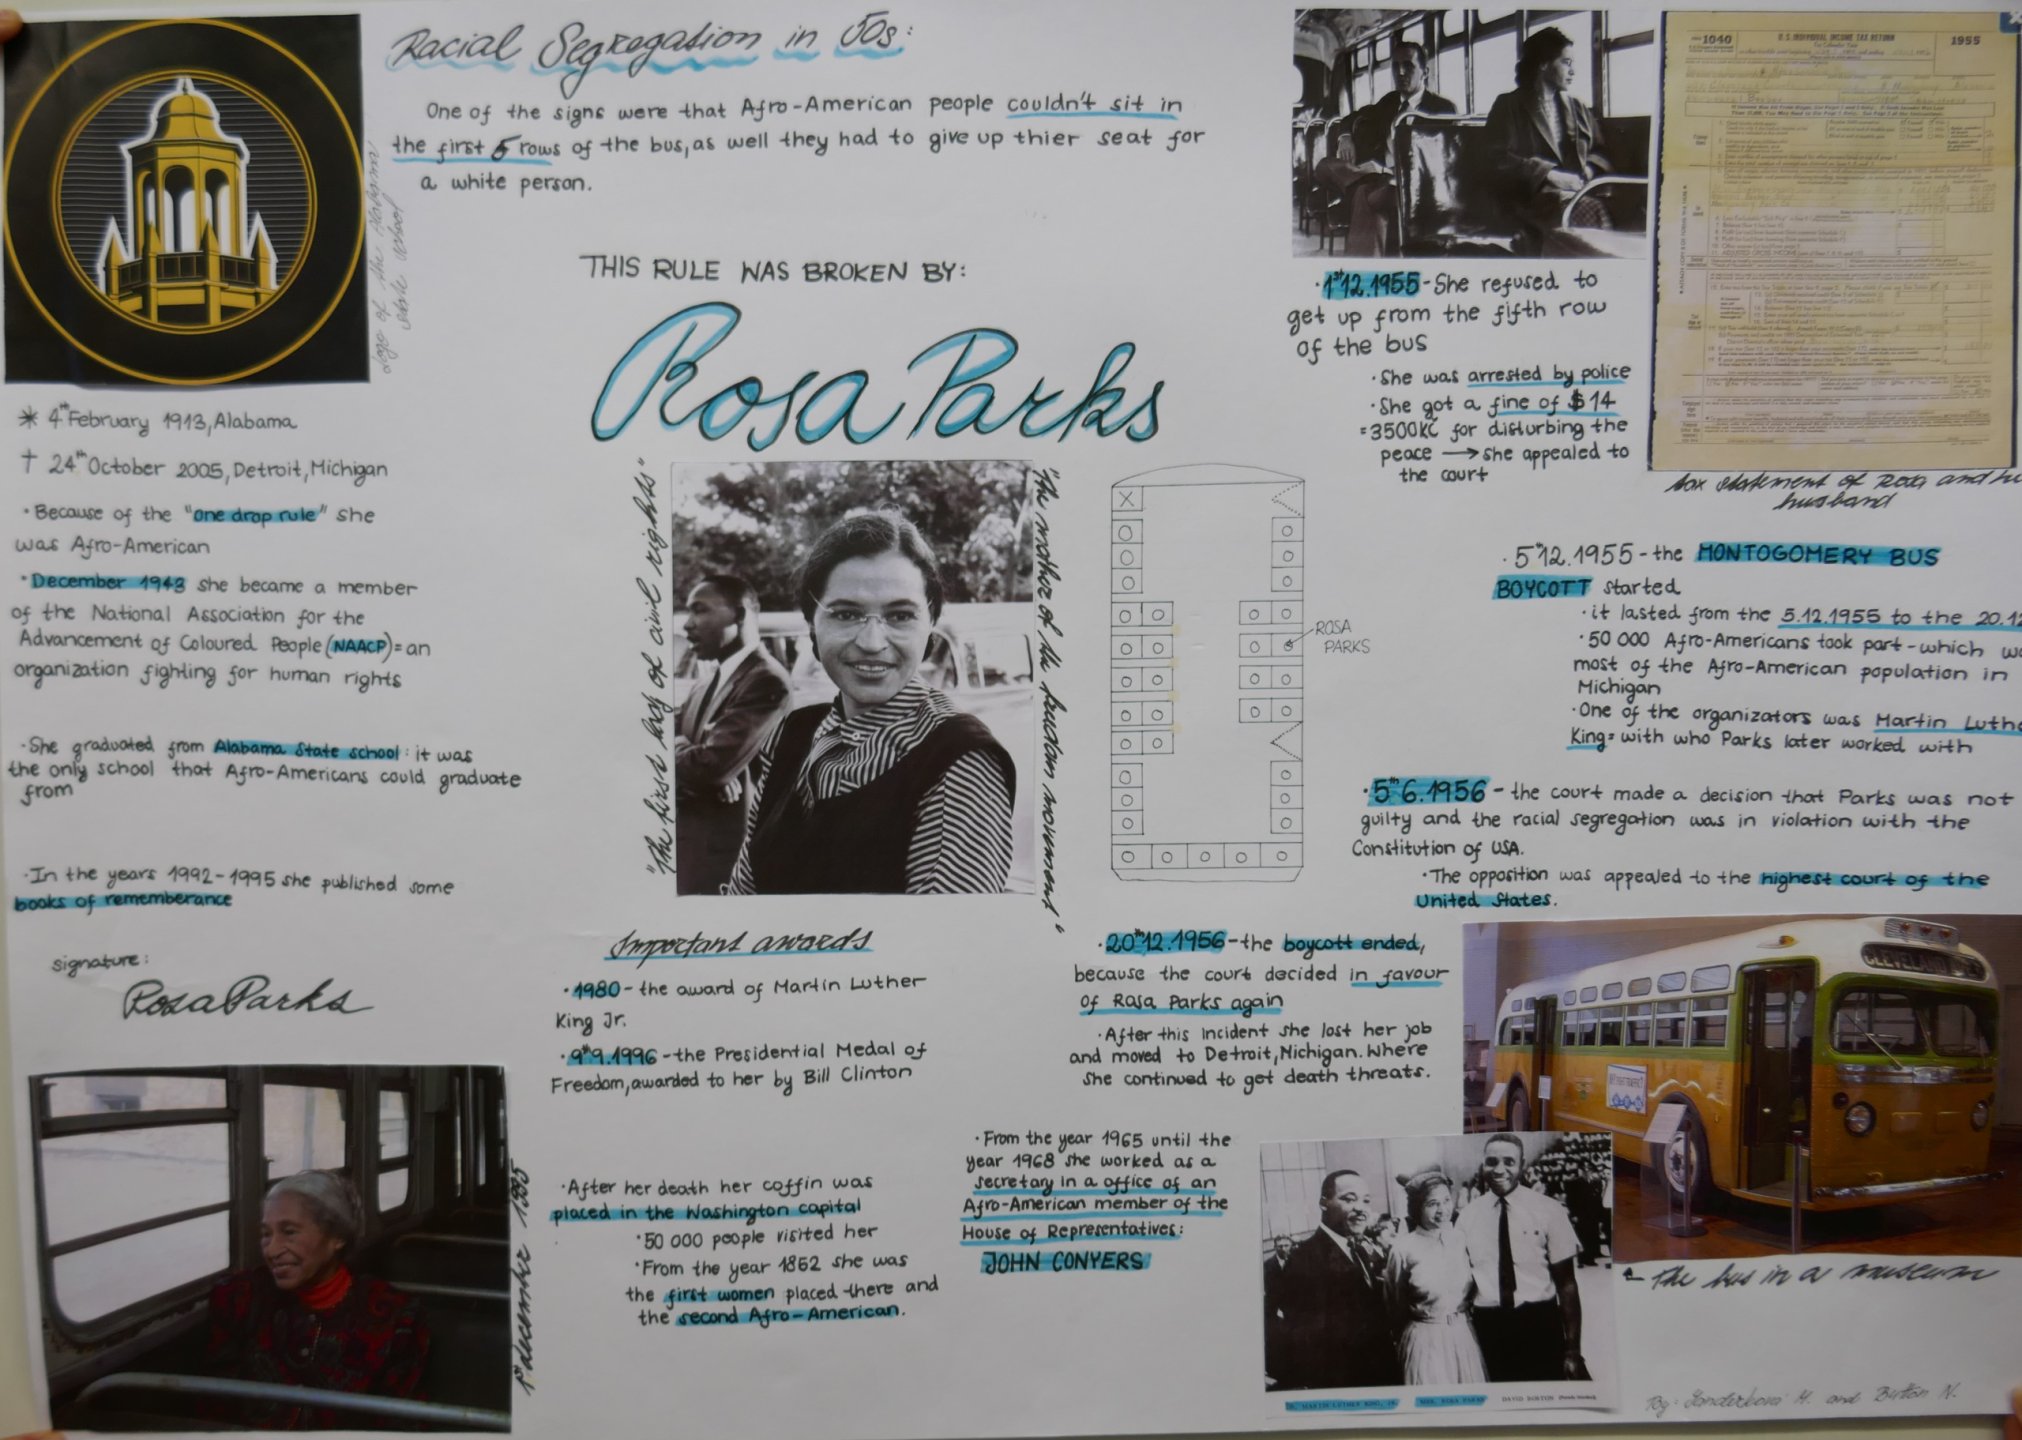 Racial Segregation in 50s:
One of the signs were that Afro-American people couldn't sit in
the first 5 rows of the bus, as well they had to give up thier seat for
a white person.
logo of the Alabama
state school
THIS RULE WAS BROKEN BY:
Rosa Parks
* 4th February 1913, Alabama
† 24th October 2005, Detroit, Michigan
· Because of the "one drop rule" she
was Afro-American
· December 1943 she became a member
of the National Association for the
Advancement of Coloured People (NAACP) = an
organization fighting for human rights
· She graduated from Alabama State school: it was
the only school that Afro-Americans could graduate
from
· In the years 1992-1995 she published some
books of rememberance
signature:
Rosa Parks
1st december 1995
"The first lady of civil rights"
"The mother of the freedom movement"
X
ROSA
PARKS
Important awards
· 1980 - the award of Martin Luther
King Jr.
· 9th 9.1996 - the Presidential Medal of
Freedom, awarded to her by Bill Clinton
· After her death her coffin was
placed in the Washington capital
· 50 000 people visited her
· From the year 1852 she was
the first women placed there and
the second Afro-American.
1040
U.S. INDIVIDUAL INCOME TAX RETURN
1955
tax statement of Rosa and
husband
· 1st 12.1955 - She refused to
get up from the fifth row
of the bus
· She was arrested by police
· She got a fine of $14
= 3500KC for disturbing the
peace → she appealed to
the court
· 5th 12.1955 - the MONTOGOMERY BUS
BOYCOTT started
· it lasted from the 5.12.1955 to the 20.12
· 50 000 Afro-Americans took part - which
most of the Afro-American population in
Michigan
· One of the organizators was Martin
King = with who Parks later worked with
· 5th 6.1956 - the court made a decision that Parks was not
guilty and the racial segregation was in violation with the
Constitution of USA.
· The opposition was appealed to the highest court of the
United States.
· 20th 12.1956 - the boycott ended,
because the court decided in favour
of Rosa Parks again
· After this incident she lost her job
and moved to Detroit, Michigan. Where
she continued to get death threats.
· From the year 1965 until the
year 1968 she worked as a
secretary in a office of an
Afro-American member of the
House of Representatives:
JOHN CONYERS
CLEVELAND
The bus in a museum
MARTIN LUTHER KING, JR. MRS. ROSA PARKS DAVID BOSTON
By: M. and N.